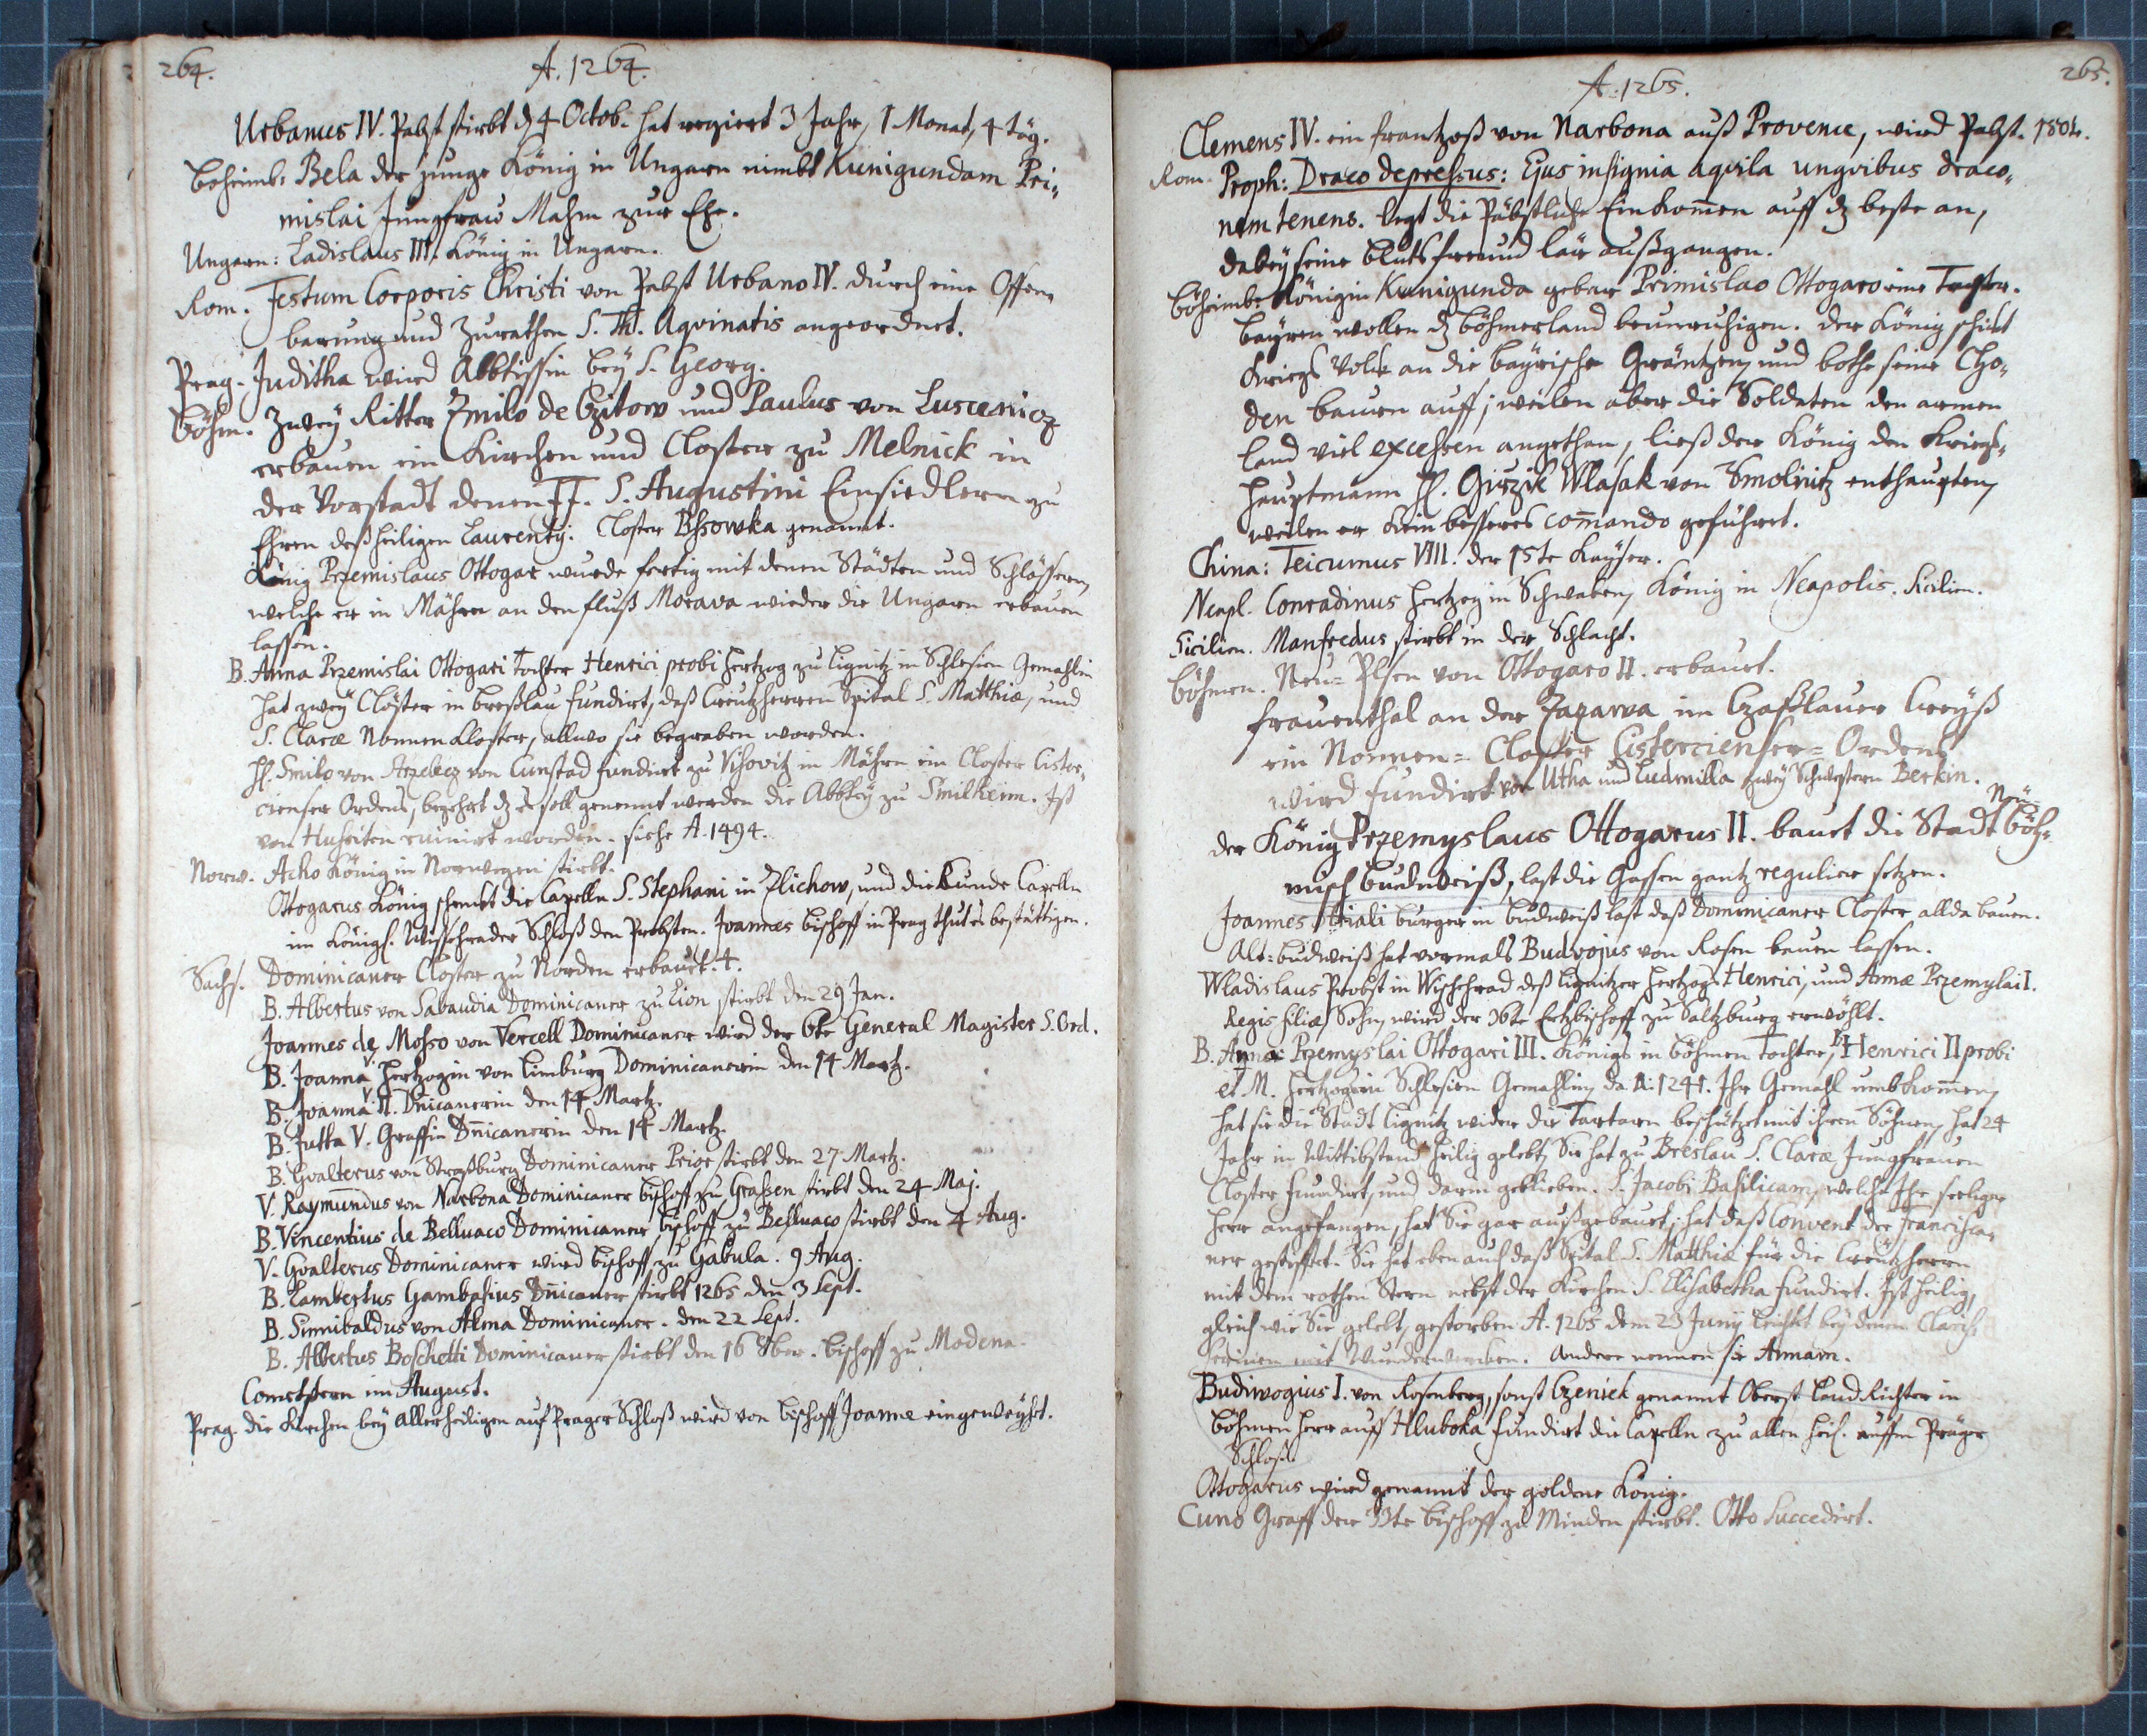 264.
A. 1264.
Urbanus IV. Pabst stirbt d 4 Octob. hat regiert 3 Jahr, 1 Monat, 4 täg.
Böheimb: Bela der junge König in Ungarn nimbt Kunigundam Pri-
mislai Jungfraw Mahm zur Ehe.
Ungarn: Ladislaus III. König in Ungarn.
Rom. Festum Corporis Christi von Pabst Urbano IV. durch eine Offen-
barung und Zurathen S. Th. Aqvinatis angeordnet.
Prag. Juditha wird Abbtissin bey S. Georg.
Böhm. Zwey Ritter Zmilo de Czitow und Paulus von Luscenicz
erbauen ein Kirchen und Closter zu Melnick in
der Vorstadt denen FF. S. Augustini Einsiedlern zu
Ehren deß heiligen Laurentij. Closter Bssowka genannt.
König Przemislaus Ottogar wurde fertig mit denen Städten und Schlössern,
welche er in Mähren an den fluß Morava wieder die Ungarn erbauen
lassen.
B. Anna Przemislai Ottogari Tochter Henrici probi Hertzog zu Lignitz in Schlesien Gemahlin
hat zwey Clöster in Breßlau fundirt, daß Creutzherren Spital S. Matthiæ, und
S. Claræ Nonnen Closter, allwo sie begraben worden.
H. Smilo von Cunstad fundirt zu Visovitz in Mähren ein Closter Cister-
cienser Ordens, begehrt dz es soll genennt werden die Abbtey zu Smilheim. Ist
von Hussiten ruinirt worden. siehe A. 1494.
Norw. Acho König in Norwegen stirbt.
Ottogarus König schenckt die Capelln S. Stephani in Zlichow, und die Runde Capelln
im Königl. Wissehrader Schloß den Probsten. Joannes Bischoff in Prag thut es bestättigen.
Sachs. Dominicaner Closter zu Norden erbauet. 4.
B. Albertus von Sabaudia Dominicaner zu Lion stirbt den 29 Jan.
Joannes de Mosso von Vercell Dominicaner wird der 6te General Magister S. Ord.
B. Joanna V. Hertzogin von Limburg Dominicanerin den 14 Martz.
B. Joanna V. II. Dn̄icanerin den 14 Martz.
B. Jutta V. Graffin Dn̄icanerin den 14 Martz.
B. Gvalterus von Straßburg Dominicaner Prior stirbt den 27 Martz.
V. Raymundus von Narbona Dominicaner Bischoff zu Grassen stirbt den 24 Maj.
B. Vincentius de Belluaco Dominicaner, Bischoff zu Belluaco stirbt den 4 Aug.
V. Gvalterus Dominicaner wird Bischoff zu Gabula. 9 Aug.
B. Lambertus Gambasius Dn̄icaner stirbt 1265 den 3 Sept.
B. Sinnibaldus von Alma Dominicaner. den 22 Sept.
B. Albertus Boschetti Dominicaner stirbt den 16 8ber. Bischoff zu Modena.
Cometstern im August.
Prag. die Kirchen bey Allerheiligen auf Prager Schloß wird von Bischoff Joanne eingeweyhet.
265.
A. 1265.
Clemens IV. ein frantzoß von Narbona auß Provence, wird Pabst. 180te.
Rom. Proph: Draco depressus: Ejus insignia aqvila ungvibus draco-
nem tenens. legt die Päbstliche Einkom̄en auff dz beste an,
dabey seine bluts freund lär außgangen.
Böheimb: Königin Kunigunda gebar Primislao Ottogaro eine Tochter.
Bayren wollen dz Böhmerland beunruhigen. der König schickt
Kriegs Volck an die bayrische Gräntzen, und bothe seine Cho-
den bauren auff; weilen aber die Soldaten den armen
Land viel excessen angethan, ließ der König den Kriegs-
hauptmann H. Giržik Wlasak von Smolnitz enthaupten,
weilen er kein besseres com̄ando geführet.
China: Teicumus VIII. der 15te Kayser.
Neapl. Conradinus Hertzog in Schwaben, König in Neapolis. Sicilien.
Sicilien. Manfredus stirbt in der Schlacht.
Böhmen. Neu-Plsen von Ottogaro II. erbauet.
Frauenthal an der Zazawa im Czaßlauer Creyß
ein Nonnen-Closter Cistercienser-Ordens
wird fundirt von Utha und Ludmilla zwey Schwestern Berkin.
der König Przemyslaus Ottogarus II. bauet die Stadt Neü-Böh-
misch Budweiß, last die Gassen gantz regulier setzen.
Joannes burger in Budweiß last daß Dominicaner Closter allda bauen.
Alt-Budweiß hat vormals Budwojus von Rosen bauen lassen.
Wladislaus Probst in Wischehrad deß Lignitzer Hertzogs Henrici, und Annæ Przemylai I.
Regis filiæ Sohn, wird der 36te Ertzbischoff zu Saltzburg erwöhlt.
B. Anna Przemyslai Ottogari III. Königs in Böhmen Tochter, Henrici II probi
et M. Hertzogs in Schlesien Gemahlin, da A: 1241. Ihr Gemahl umbkom̄en,
hat sie die Stadt Lignitz wider die Tartarn beschützet mit ihren Söhnen, hat 24
Jahr in Wittibstand heilig gelebt, Sie hat zu Breslau S. Claræ Jungfrauen
Closter fundirt, und darin geblieben. S. Jacobi Basilicam, welche Ihr seeliger
Herr angefangen, hat Sie gar außgebauet; hat daß Convent der Francisca-
ner gestifftet. Sie hat eben auch daß Spital S. Matthiæ für die Creutzherrn
mit dem rothen Stern nebst der Kirchen S. Elisabetha fundirt. Ist heilig,
gleich wie Sie gelebt, gestorben A. 1265 dem 23 Junij leichtet bey denen Claris-
serinen mit Wunderwercken. Andere nennen sie Annam.
Budiwogius I. von Rosenberg, sonst Czeniek genannt Oberst Land Richter in
Böhmen Herr auff Hluboka fundirt die Capelln zu allen Heil. auffm Prager
Schloß.
Ottogarus wird genannt der goldene König.
Cuno Graff der 33te Bischoff zu Minden stirbt. Otto succedirt.